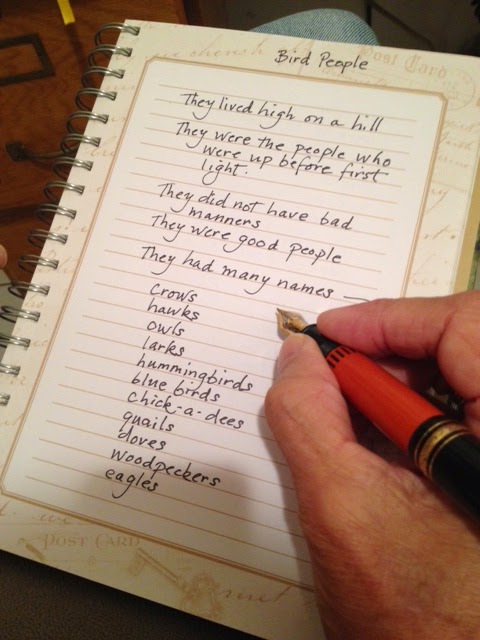 Bird People
Post Card
They lived high on a hill
They were the people who
were up before first
light.
They did not have bad
manners
They were good people
They had many names —
crows
hawks
owls
larks
hummingbirds
blue birds
chick-a-dees
quails
doves
woodpeckers
eagles
POST CARD